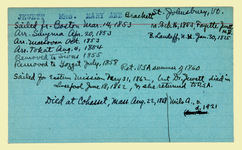 JEWETT Mrs. MARY ANN Brackett St. Johnsbury, Vt.
Sailed fr. Boston Mar. 14, 1853 m.
Arr. Smyrna Apr. 20, 1853 B. Landaff, N.H. Jan. 30, 1825
Arr. Oct. 1853
Arr. Tokat Aug. 4, 1854
Removed to Sivas 1855
Removed to Yozgat July, 1858 Ret. USA summer of 1860
Sailed for Eastern Mission May 31, 1862, but Dr. Jewett died in
Liverpool June 18, 1862, & she returned to USA.
Died at Cohasset, Mass Aug. 22,